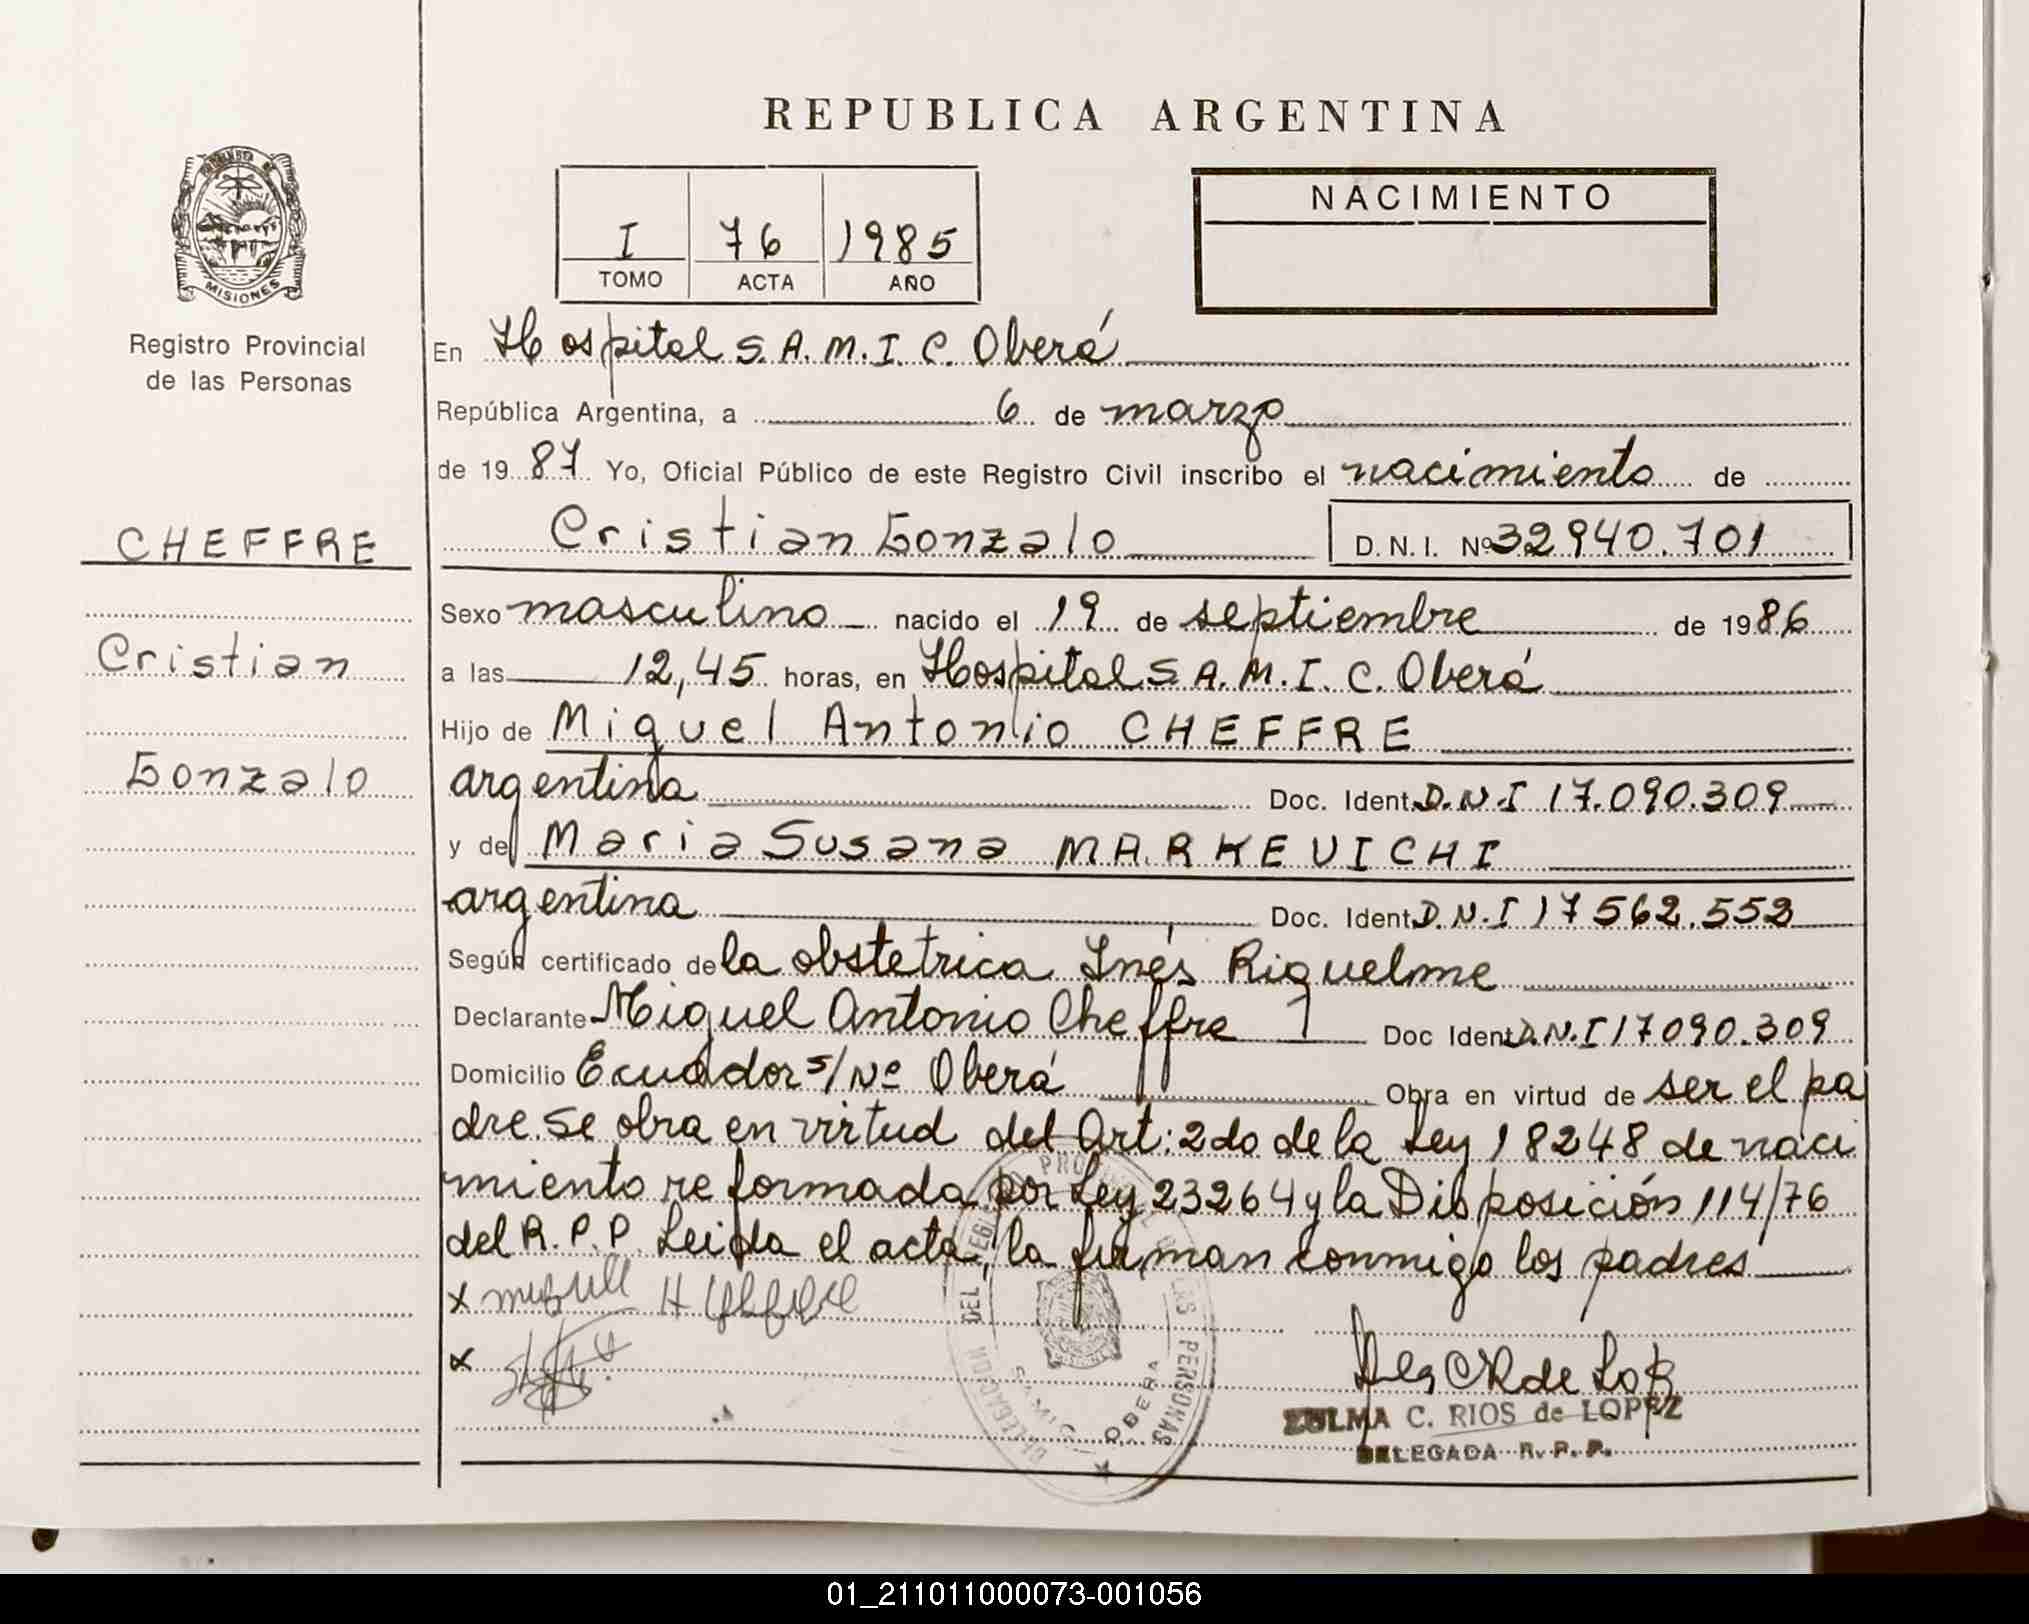 REPUBLICA ARGENTINA
MISIONES
Registro Provincial
de las Personas
I 76 1985
TOMO ACTA AÑO
NACIMIENTO
En Hospital S.A.M.I.C. Oberá
República Argentina, a 6 de marzo
de 1987 Yo, Oficial Público de este Registro Civil inscribo el nacimiento de
CHEFFRE
Cristian Gonzalo D.N.I. Nº 32940.701
Sexo masculino nacido el 19 de septiembre de 1986
Cristian
a las 12,45 horas, en Hospital S.A.M.I.C. Oberá
Hijo de Miguel Antonio CHEFFRE
Gonzalo
argentina Doc. Ident. D.N.I 17.090.309
y de Maria Susana MARKEVICHI
argentina Doc. Ident. D.N.I 17562.552
Según certificado de la obstetrica Inés Riquelme
Declarante Miguel Antonio Cheffre Doc Ident. D.N.I 17090.309
Domicilio Ecuador s/Nº Oberá Obra en virtud de ser el pa
dre. Se obra en virtud del Art: 2do de la Ley 18248 de naci
miento reformada por Ley 23264 y la Disposición 114/76
del R.P.P. Leida el acta, la firman conmigo los padres
x
x
ZULMA C. RIOS de LOPEZ
DELEGADA R.P.P.
DELEGACION DEL REGISTRO PROVINCIAL DE LAS PERSONAS
OBERA
01_211011000073-001056